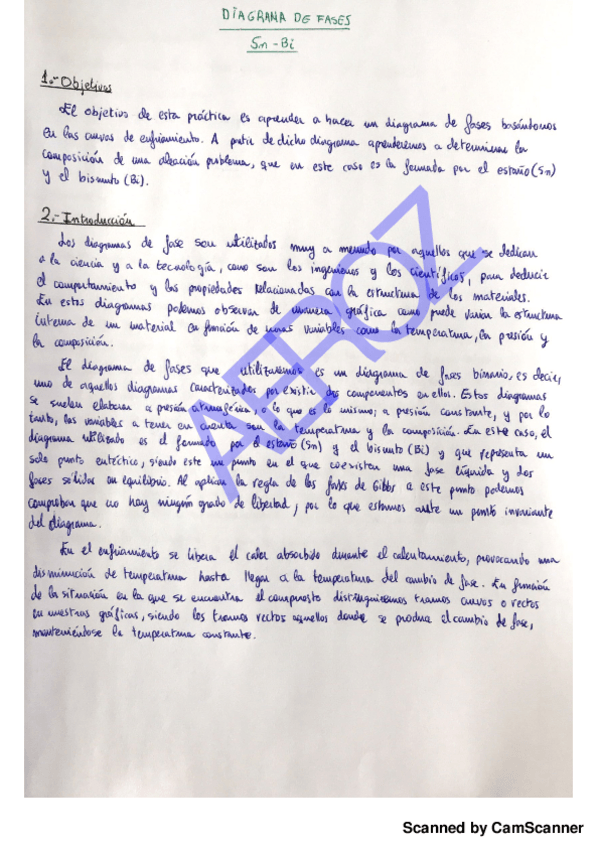 DIAGRAMA DE FASES
Sn - Bi
1.- Objetivos
El objetivo de esta práctica es aprender a hacer un diagrama de fases basándonos
en las curvas de enfriamiento. A partir de dicho diagrama aprenderemos a determinar la
composición de una aleación problema, que en este caso es la formada por el estaño (Sn)
y el bismuto (Bi).
2.- Introducción
Los diagramas de fase son utilizados muy a menudo por aquellos que se dedican
a la ciencia y a la tecnología, como son los ingenieros y los científicos, para deducir
el comportamiento y las propiedades relacionadas con la estructura de los materiales.
En estos diagramas podemos observar de manera gráfica como puede variar la estructura
interna de un material en función de unas variables como la temperatura, la presión y
la composición.
El diagrama de fases que utilizaremos es un diagrama de fases binario, es decir,
uno de aquellos diagramas caracterizados por existir dos componentes en ellos. Estos diagramas
se suelen elaborar a presión atmosférica, o lo que es lo mismo; a presión constante, y por lo
tanto, las variables a tener en cuenta son la temperatura y la composición. En este caso, el
diagrama utilizado es el formado por el estaño (Sn) y el bismuto (Bi) y que representa un
solo punto eutéctico, siendo este un punto en el que coexisten una fase líquida y dos
fases sólidas en equilibrio. Al aplicar la regla de las fases de Gibbs a este punto podemos
comprobar que no hay ningún grado de libertad, por lo que estamos ante un punto invariante
del diagrama.
En el enfriamiento se libera el calor absorbido durante el calentamiento, provocando una
disminución de temperatura hasta llegar a la temperatura del cambio de fase. En función
de la situación en la que se encuentra el compuesto distinguiremos tramos curvos o rectos
en nuestras gráficas, siendo los tramos rectos aquellos donde se produce el cambio de fase,
manteniéndose la temperatura constante.
AEROZ
Scanned by CamScanner